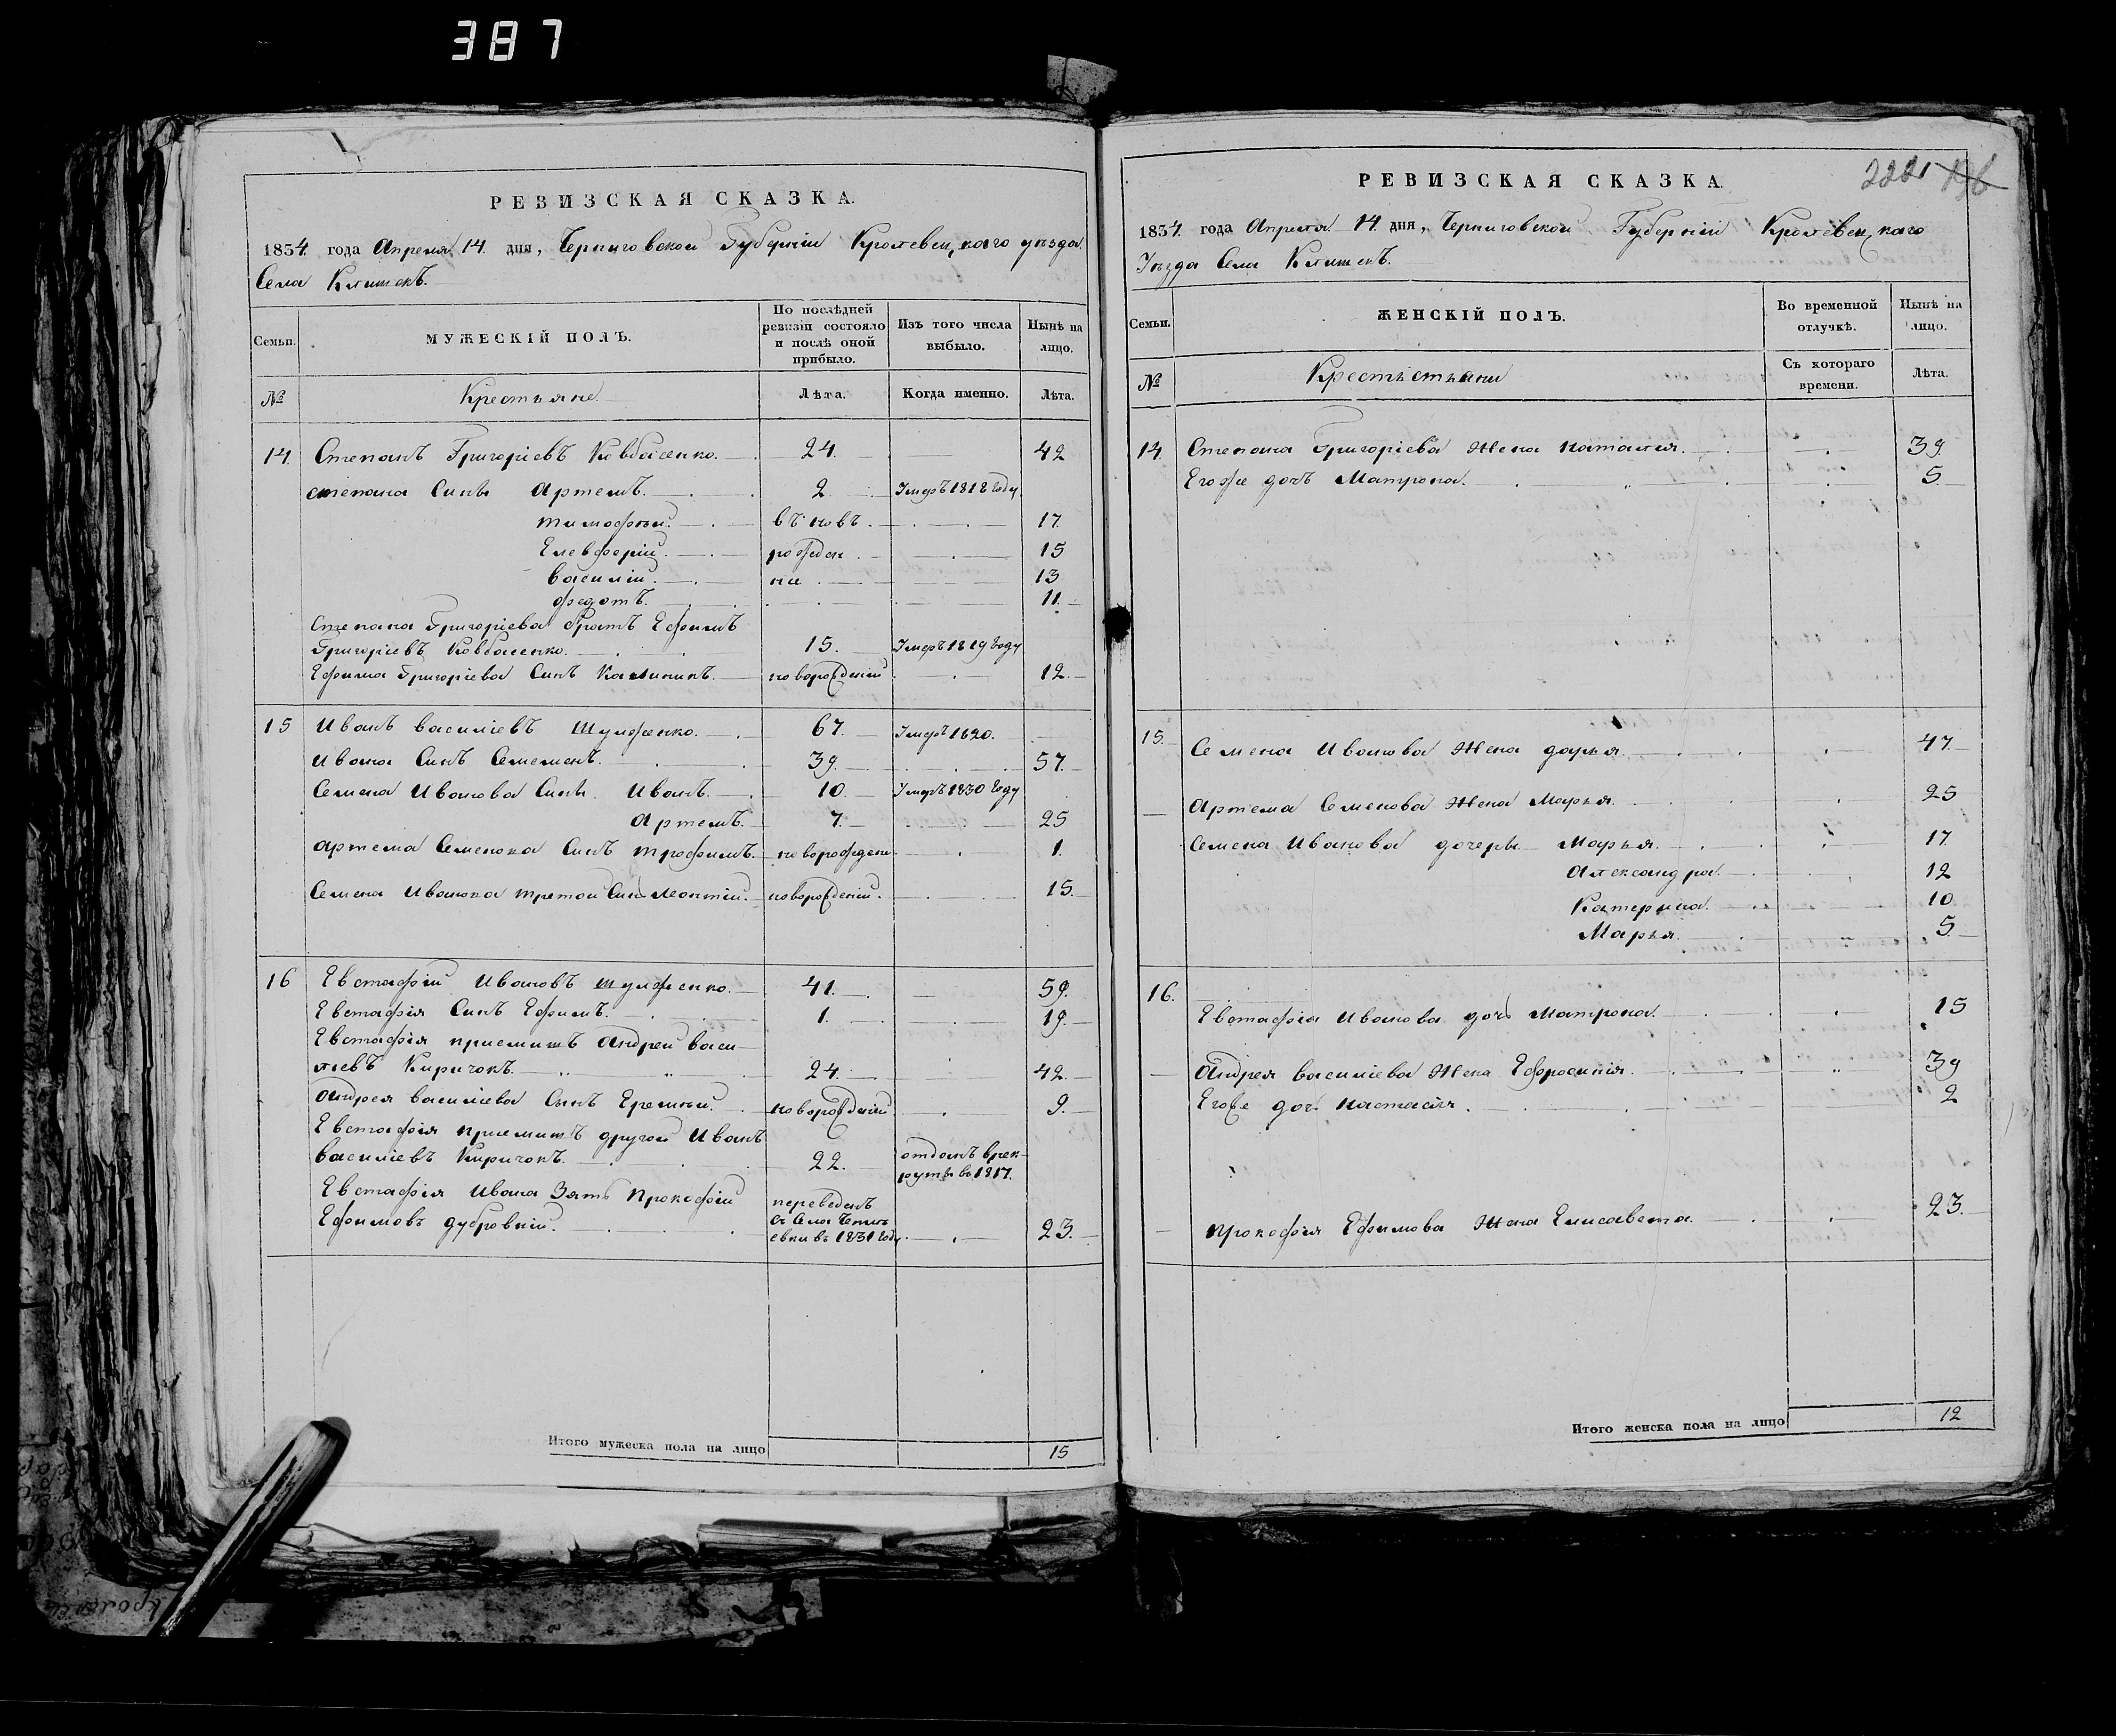 387
РЕВИЗСКАЯ СКАЗКА.
1834 года Апреля 14 дня, Черниговской Губерніи Кролевецкаго уѣзда
Села Клишекъ.
Семьи.
МУЖЕСКІЙ ПОЛЪ.
По послѣдней ревизіи состояло и послѣ оной прибыло.
Изъ того числа выбыло.
Нынѣ на лицо.
№ Крестьяне Лѣта. Когда именно. Лѣта.
14 Степанъ Григоріевъ Ковбасенко. 24. 42
степана Синъ Артемъ. 2 Умеръ 1818 году
тимофѣй. въ новъ 17.
Елевферій. рожден 15
василій. ни 13
федотъ. 11.
Степана Григоріева братъ Ефимъ
Григоріевъ Ковбасенко. 15. Умеръ 1819 году
Ефима Григоріева Синъ Калиникъ. новорожденій 12.
15 Иванъ василіевъ Шулженко. 67. Умеръ 1820.
Ивана Синъ Семенъ. 39. 57.
Семена Иванова Сини Иванъ. 10. Умеръ 1830 году
Артемъ. 7. 25
артема Семенова Синъ трофимъ. новорожден 1.
Семена Иванова третой Синъ леонтій. новорожденій. 15.
16 Евстафій Ивановъ шулженко. 41. 59.
Евстафія Синъ Ефимъ. 1. 19.
Евстафія приемишъ Андрей васи-
лиевъ Киричокъ. 24. 42.
Андрея василіева Сынъ Еремѣй. новорожденій 9.
Евстафія приемишъ другой Иванъ
василіевъ Киричокъ. 22. отданъ в рек-
руты въ 1817.
Евстафія Ивана Зять Прокофій переведенъ
Ефимовъ дубровній. съ Села
евки въ 1831 году 23.
Итого мужеска пола на лицо 15
РЕВИЗСКАЯ СКАЗКА.
1834 года Апреля 14 дня, Черниговской Губерніи Кролевецкаго
Уѣзда Села Клишекъ.
Семьи.
ЖЕНСКІЙ ПОЛЪ.
Во временной отлучкѣ.
Нынѣ на лицо.
№ Съ котораго времени. Лѣта.
14. Степана Григоріева Жена Наталия. 39.
Егоже дочъ Матрона. 5.
15. Семена Иванова Жена дарья. 47.
Артема Семенова Жена Марья. 25
Семена Иванова дочеры Марья. 17.
Александра. 12
Катерина. 10
Марья. 5.
16.
Евстафія Иванова дочъ Матрона. 15
Андрея василіева Жена Ефросинія. 39
Егоже дочъ Настасія. 2
прокофія Ефимова Жена Елисавета. 23.
Итого женска пола на лицо 12